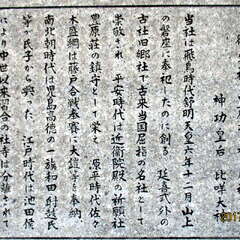 神功皇后 比咩大神
当社は飛鳥時代舒明天皇六年十二月山上
の磐座に奉祀したのに創る 延喜式外の
古社旧郷社で古来当国屈指の名社として
崇敬され 平安時代は近衛院の祈願社
豊原荘の鎮守として栄え 源平時代佐々
木盛綱は藤戸合戦参賽し大鎧等を奉納
南北朝時代は児島高徳の一族和田範氏
等が氏子から興った 江戸時代は池田侯
により中世以来習合の社寺は分離されて